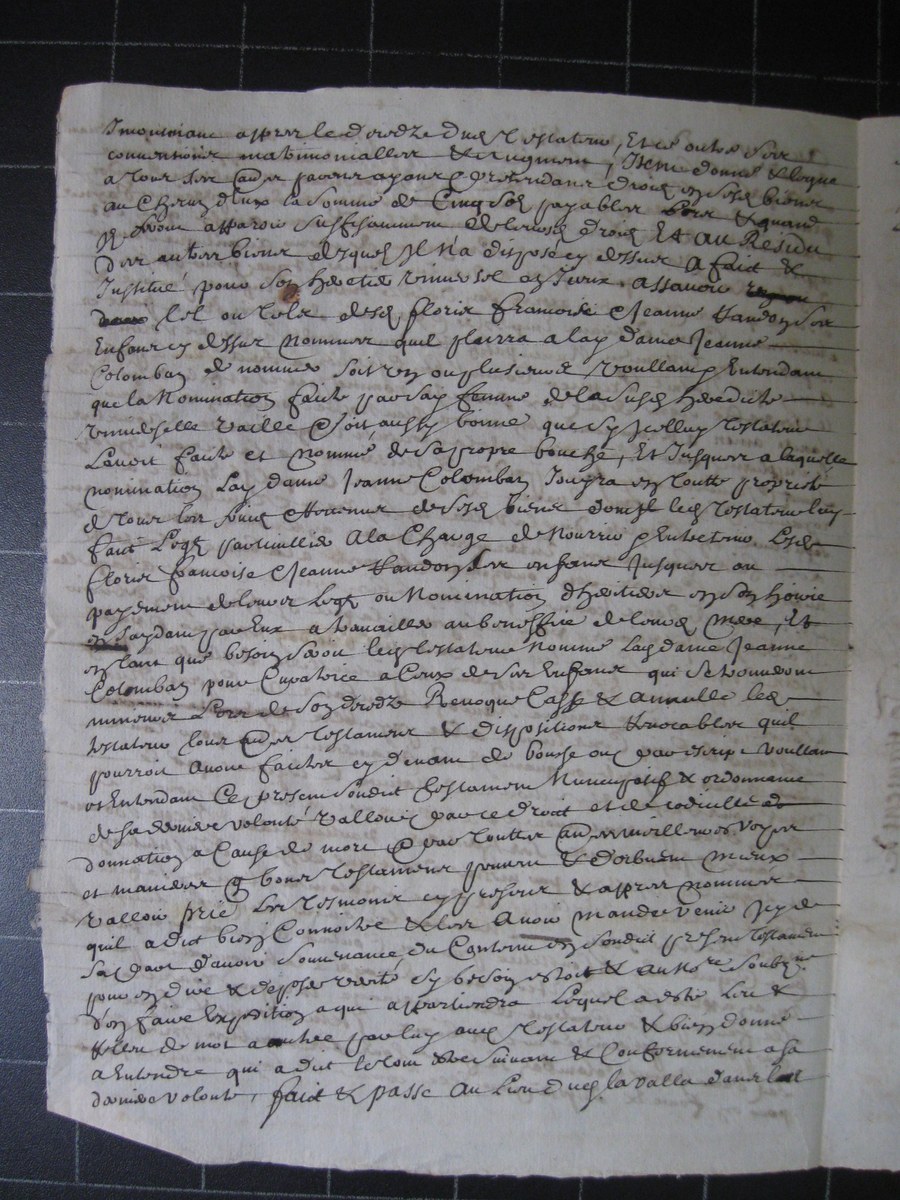 apprer le decedz dud Testateur, Et ce outre ses
conventions matrimonialles & augment, Item donne & legue
a tous ses autres parans ayans & pretendans droict en sesd biens
au chacun d'eux la somme de Cinq sols payables & quand
Il aparoir suffisamment de leursd droict Et Au Residu
des autres biens desquels Il n'a disposé cy dessus A faict &
Institué pour son heritier universel assavoir
tel ou telle desd florie francoise & Jeanne
Enfans cy dessus Nommes quil plairra a lad dame Jeanne
Colomban de nommer soit un ou plusieurs voullant & Entendant
que la Nomination faite par sad femme de la susd heredite
universelle vaille & soit aussy bonne que sy Icelluy Testateur
Lavoit faite et nommé de sa propre bouche, Et Jusques a laquelle
nomination Lad dame Jeanne Colomban Jouyra en toutte proprieté
de tous les fruits & revenus de sesd biens dont led Testateur luy
faict Legat particullier A la Charge de Nourrir & Entretenir Lesd
florie francoise & Jeanne ses enfans Jusques au
payement de leurs Legat ou Nomination d'heritier en son hoirie
en saydant par Eux a travailler au beneffice de leurd mere, Et
en tant que besoin seroit led Testateur Nomme Lad dame Jeanne
Colomban pour Curatrice a Ceux de ses Enfans qui se trouveront
mineurs Lors de son decedz Revoque Casse & Annulle led
testateur tous autres Testament & dispositions revocables quil
pourroit avoir faites cy devant de bouche ou par escript voullant
et Entendant Ce present sondict Testament Nuncupatif & ordonnance
de sa derniere volonté valloir par ce droict et de codicille &
donnation a Cause de mort & par touttes autres meilleures voyes
et manieres que bons Testament peuvent & doibvent mieux
valloir prié Les tesmoins cy presens & apprer nommes
quil a dict bien Connoistre & les Avoir mandés venir Icy de
sa part d'avoir souvenance du Contenu en sondict present Testament
pour en dire & deposer verité sy besoin estoit & au No.re soubz.ne
d'en faire Expedition a qui appartiendra Lequel a esté Leu &
releu de mot a autre par luy aud Testateur & bien donné
a Entendre qui a dict le tout estre suivant & Conformement a sa
derniere volonté, faict & passe Au Lieu dud lavalla dans